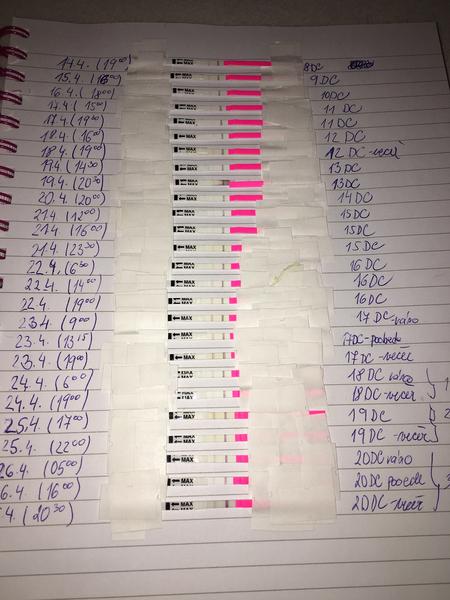 17.4. (19⁰⁰) MAX 8DC
15.4. (16⁰⁰) MAX 9DC
16.4. (18⁰⁰) MAX 10DC
17.4. (15⁰⁰) MAX 11 DC
17.4. (19³⁰) MAX 11 DC
18.4. (16⁰⁰) MAX 12 DC
18.4. (19⁰⁰) MAX 12 DC-večer
19.4. (14³⁰) MAX 13DC
19.4. (20³⁰) MAX 13DC
20.4. (20⁰⁰) MAX 14DC
21.4 (12⁰⁰) MAX 15DC
21.4. (16⁰⁰) MAX 15DC
21.4. (23³⁰) MAX 15DC
22.4. (6³⁰) MAX 16 DC
22.4. (14⁰⁰) MAX 16DC
22.4. (19⁰⁰) MAX 16DC
23.4. (9⁰⁰) MAX 17 DC ráno
23.4. (13¹⁵) MAX 17DC-poobede
23.4. (19⁰⁰) MAX 17DC-večer
24.4. (6⁰⁰) MAX 18DC ráno
24.4. (19⁰⁰) MAX 18DC-večer
25.4. (17⁰⁰) MAX 19DC
25.4. (22⁰⁰) MAX 19DC-večer
26.4. (05⁰⁰) MAX 20DC ráno
6.4. (16⁰⁰) MAX 20DC poobede
4. (20³⁰) MAX 20DC-večer